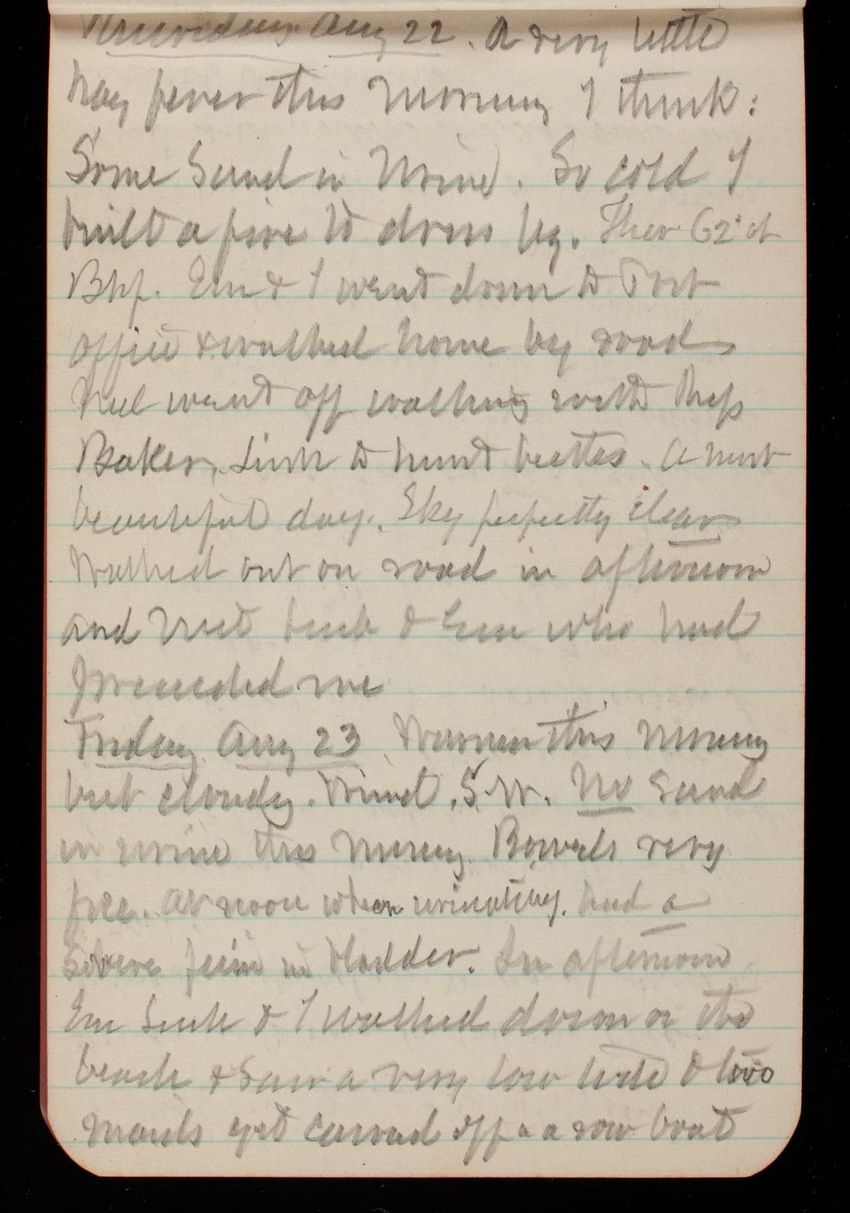 Thursday Aug 22. A very little
hay fever this morning I think:
Some Sand in Urine. So cold I
built a fire to dress by. Ther 62° at
Bkf. Em & I went down to Post
office & walked home by road
went off walking with
Baker, to hunt beetles. A most
beautiful day. Sky perfectly clear
Walked out on road in afternoon
and met & Em who had
preceeded me
Friday Aug 23 Warmer this morning
but cloudy. Wind S.W. No Sand
in urine this morning. Bowels very
free. At noon when urinating had a
Severe pain in bladder. In afternoon
Em & I walked down on the
beach & saw a very low tide & two
get carried off a row boat